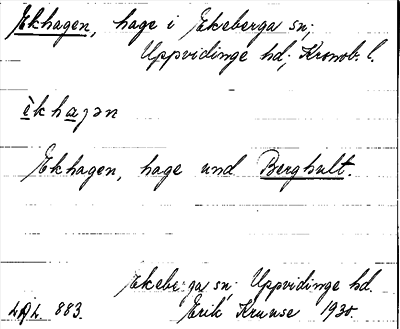 Ekhagen, hage i Ekeberga sn;
Uppvidinge hd; Kronob. l.
èkhaɡən
Ekhagen, hage und Berghult.
Ekeberga sn; Uppvidinge hd.
LAL 883. Erik Kruuse 1930.